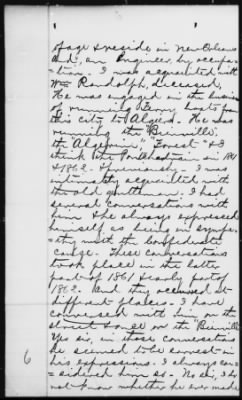 of age & reside in New Orleans
and, an Engineer by occupa-
tion. I was acquainted with
Wm Randolph, deceased,
He was engaged in the busines
of running Ferry boats from
this city to Algiers. He was
running the "Bienville",
the "Algerine", "Forest" & I
think the Pontchartrain in 1861
& 1862. Previously I was
intimately acquainted with
the old gentleman. I had
several conversations with
him & he always expressed
himself as being in sympa-
thy with the Confederate
cause. These conversations
took place in the latter
part of 1861 & early part of
1862. And they occurred at
different places. I have
conversed with him on the
street & once on the Bienville
Yes sir, in those conversations
he seemed to be earnest in
his expressions. I always con-
6 sidered him so. No sir, I do
not know whether he ever made